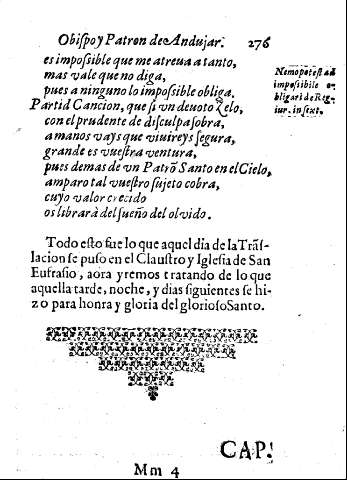 Obispo y Patron de Andujar. 276
es impossible que me atreva a tanto,
mas vale que no diga,
pues a ninguno lo impossible obliga.
Partid Cancion, que si vn deuoto Zelo,
con el prudente de disculpa sobra,
a manos vays que viuireys segura,
grande es vuestra ventura,
pues demas de vn Patrõ Santo en el Cielo,
amparo tal vuestro sujeto cobra,
cuyo valor crecido
os librarà del sueño del olvido.
Nemo potest ad
impossibile o-
bligari de Reg-
iur. in sext.
Todo esto fue lo que aquel dia de la Trãs-
lacion se puso en el Claustro y Iglesia de San
Eufrasio, aora yremos tratando de lo que
aquella tarde, noche, y dias siguientes se hi-
zo para honra y gloria del glorioso Santo.
Mm 4
CAP.